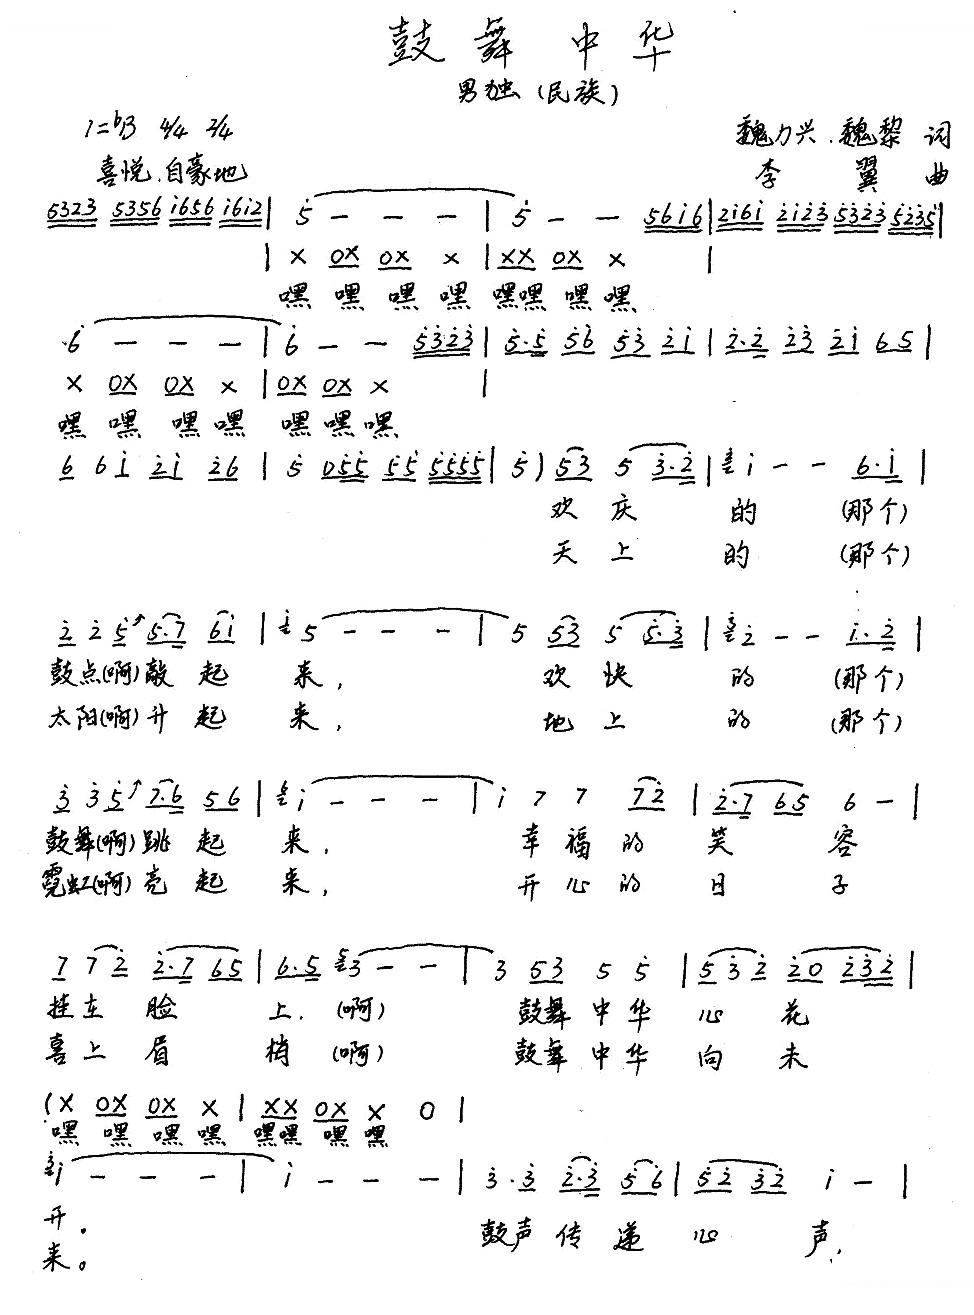 鼓舞中华
男独（民族）
1=♭B 4/4 2/4
魏力兴、魏黎 词
喜悦、自豪地
李翼 曲
5323 5356 i656 i6i2 | 5 – – – | 5 – – 56i6 | 2i6i 2i23 5323 5235 |
| X 0X 0X X | XX 0X X |
嘿 嘿 嘿 嘿 嘿嘿 嘿 嘿
6 – – – | 6 – – 5323 | 5·5 56 53 2i | 2·2 23 2i 65 |
X 0X 0X X | 0X 0X X |
嘿 嘿 嘿 嘿 嘿 嘿 嘿
6 6i 2i 26 | 5 055 55 5555 | 5) 53 5 3·2 | i – – 6·i |
欢 庆 的 (那个)
天 上 的 (那个)
2 2 5 5·7 6i | 5 – – – | 5 53 5 5·3 | 2 – – i·2 |
鼓点(啊)敲 起 来， 欢 快 的 (那个)
太阳(啊)升 起 来， 地 上 的 (那个)
3 3 5 7·6 56 | i – – – | i 7 7 72 | 2·7 65 6 – |
鼓舞(啊)跳 起 来， 幸 福 的 笑 容
霓虹(啊)亮 起 来， 开 心 的 日 子
7 7 2 2·7 65 | 6·5 3 – – | 3 53 5 5 | 5 3 2 20 232 |
挂 在 脸 上．(啊) 鼓舞 中 华 心 花
喜 上 眉 梢 (啊) 鼓舞 中 华 向 未
(X 0X 0X X | XX 0X X 0 |
嘿 嘿 嘿 嘿 嘿嘿 嘿 嘿
i – – – | i – – – | 3·3 2·3 56 | 52 32 i – |
开。 鼓声 传 递 心 声，
来。